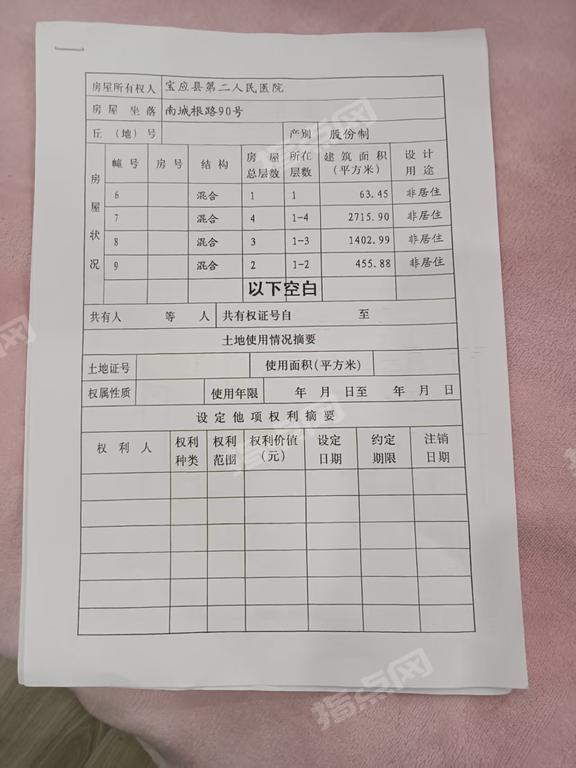 房屋所有权人 宝应县第二人民医院
房屋坐落 南城根路90号
丘（地）号 产别 股份制
房屋状况 幢号 房号 结构 房屋总层数 所在层数 建筑面积（平方米） 设计用途
6 混合 1 1 63.45 非居住
7 混合 4 1-4 2715.90 非居住
8 混合 3 1-3 1402.99 非居住
9 混合 2 1-2 455.88 非居住
以下空白
共有人 等 人 共有权证号自 至
土地使用情况摘要
土地证号 使用面积（平方米）
权属性质 使用年限 年 月 日至 年 月 日
设定他项权利摘要
权利人 权利种类 权利范围 权利价值（元） 设定日期 约定期限 注销日期
指点网